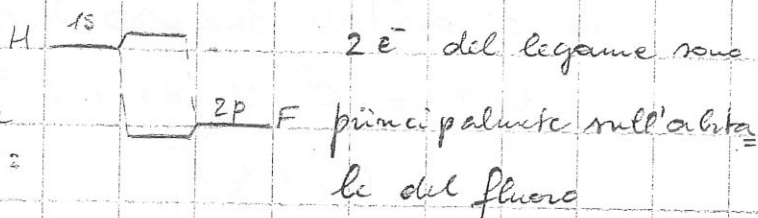 H 1s 2 e⁻ del legame sono
2p F principalmente sull'orbita
le del fluoro